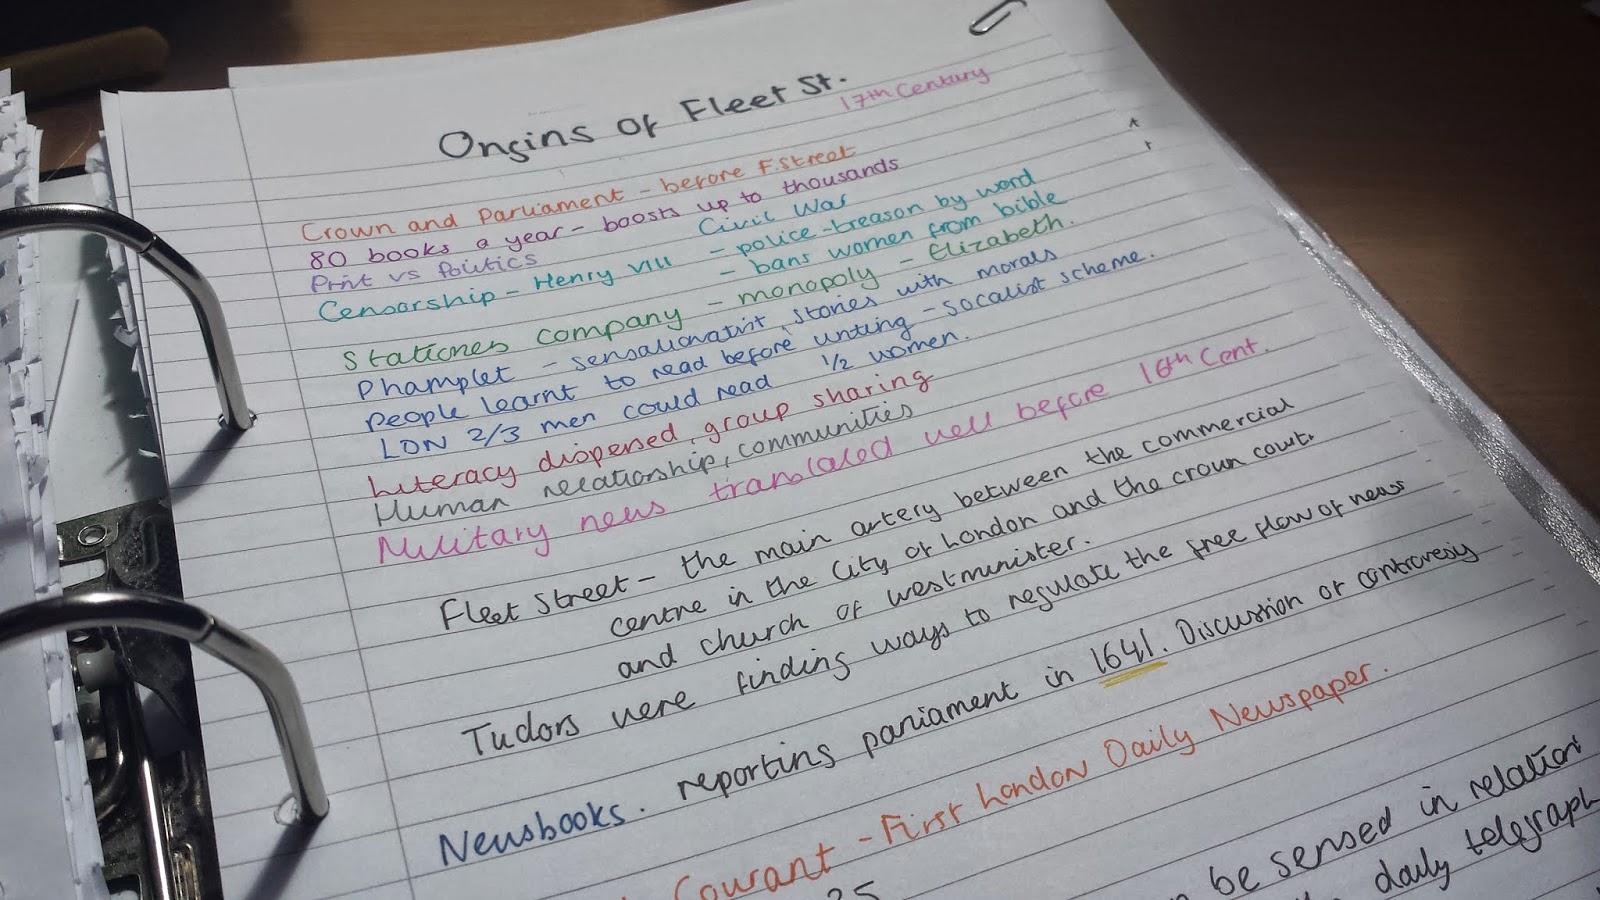 Origins of Fleet St.
17th Century
Crown and Parliament - before F.Street
80 books a year - boosts up to thousands
Print vs Politics Civil War
Censorship - Henry VIII - police - treason by word
- bans women from bible
Stationes company - monopoly - Elizabeth.
Phamplet - sensationalist, stories with morals
People learnt to read before writing - socalist scheme.
LDN 2/3 men could read 1/2 women.
Literacy dispersed, group sharing
Human relationship, communities
Military news translated well before 16th Cent.
Fleet Street - the main artery between the commercial
centre in the City of London and the crown court.
and church of westminister.
Tudors were finding ways to reguate the free flow of news
Newsbooks. reporting parliament in 1641. Discussion or controversy
Courant - First London Daily Newspaper.
be sensed in relation
daily telegraph